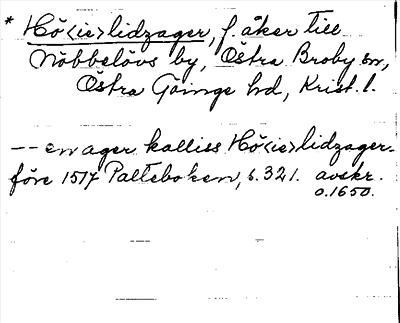 * Hö<ie>lidzager, f. åker till
Nöbbelövs by, Östra Broby sn,
Östra Göinge hd, Krist. l.
-- en ager kalliss Hö<ie>lidzager.
före 1517 Palteboken, s. 321. avskr.
o. 1650.